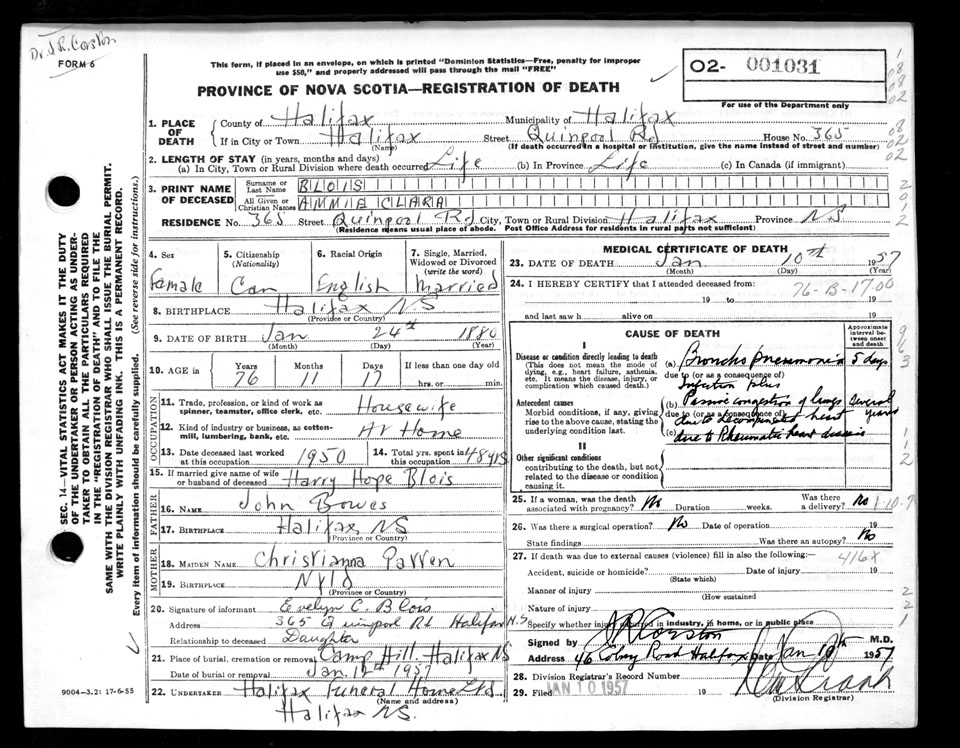 Dr. J.R. Corston
FORM 6
This form, if placed in an envelope, on which is printed "Dominion Statistics—Free, penalty for improper
use $50," and properly addressed will pass through the mail "FREE"
02- 001031
For use of the Department only
PROVINCE OF NOVA SCOTIA—REGISTRATION OF DEATH
1. PLACE OF DEATH County of Halifax Municipality of Halifax
If in City or Town Halifax (Name) Street Quinpool Rd House No. 365
(If death occurred in a hospital or institution, give the name instead of street and number)
2. LENGTH OF STAY (in years, months and days)
(a) In City, Town or Rural Division where death occurred Life (b) In Province Life (c) In Canada (if immigrant)
3. PRINT NAME OF DECEASED Surname or Last Name BLOIS
All Given or Christian Names ANNIE CLARA
RESIDENCE No. 365 Street Quinpool Rd City, Town or Rural Division Halifax Province NS
(Residence means usual place of abode. Post Office Address for residents in rural parts not sufficient)
4. Sex Female
5. Citizenship (Nationality) Can
6. Racial Origin English
7. Single, Married, Widowed or Divorced (write the word) Married
8. BIRTHPLACE Halifax NS
(Province or Country)
9. DATE OF BIRTH Jan 24th 1880
(Month) (Day) (Year)
10. AGE in Years 76 Months 11 Days 17 If less than one day old
hrs. or min.
OCCUPATION
11. Trade, profession, or kind of work as spinner, teamster, office clerk, etc. Housewife
12. Kind of industry or business, as cotton-mill, lumbering, bank, etc. At Home
13. Date deceased last worked at this occupation 1950
14. Total yrs. spent in this occupation 48 yrs
15. If married give name of wife or husband of deceased Harry Hope Blois
FATHER
16. NAME John Bowes
17. BIRTHPLACE Halifax NS
(Province or Country)
MOTHER
18. MAIDEN NAME Christianna
19. BIRTHPLACE Nfld
(Province or Country)
20. Signature of informant Evelyn C. Blois
Address 365 Quinpool Rd Halifax N.S
Relationship to deceased Daughter
21. Place of burial, cremation or removal Camp Hill, Halifax NS
Date of burial or removal Jan 12th 1957
22. UNDERTAKER Halifax Funeral Home Ltd
(Name and address)
Halifax NS.
MEDICAL CERTIFICATE OF DEATH
23. DATE OF DEATH Jan 10th 1957
(Month) (Day) (Year)
24. I HEREBY CERTIFY that I attended deceased from:
76-B-17.00
19 to 19
and last saw h alive on 19
CAUSE OF DEATH
Approximate interval between onset and death
I
Disease or condition directly leading to death
(This does not mean the mode of dying, e.g., heart failure, asthenia, etc. It means the disease, injury, or complication which caused death.)
(a) Broncho pneumonia 5 days
due to (or as a consequence of)
Infection plus
Antecedent causes
Morbid conditions, if any, giving rise to the above cause, stating the underlying condition last.
(b) Passive congestion of lungs several years
due to (or as a consequence of)
due to decompensated heart
(c) due to Rheumatic heart disease
II
Other significant conditions
contributing to the death, but not related to the disease or condition causing it.
25. If a woman, was the death associated with pregnancy? No Duration weeks. Was there a delivery? No
26. Was there a surgical operation? No Date of operation 19
State findings Was there an autopsy? No
27. If death was due to external causes (violence) fill in also the following:
416X
Accident, suicide or homicide? Date of injury 19
(State which)
Manner of injury
(How sustained
Nature of injury
Specify whether injury occurred in industry, in home, or in public place
Signed by J R Corston M.D.
Address 46 Road Halifax Date Jan 1957
28. Division Registrar's Record Number
29. Filed JAN 10 1957 19
(Division Registrar)
9004—3.2: 17-6-55
SEC. 14—VITAL STATISTICS ACT MAKES IT THE DUTY
OF THE UNDERTAKER OR PERSON ACTING AS UNDER-
TAKER TO OBTAIN ALL THE PARTICULARS REQUIRED
IN THE "REGISTRATION OF DEATH" AND TO FILE THE
SAME WITH THE DIVISION REGISTRAR WHO SHALL ISSUE THE BURIAL PERMIT.
WRITE PLAINLY WITH UNFADING INK. THIS IS A PERMANENT RECORD.
Every item of information should be carefully supplied. (See reverse side for instructions.)